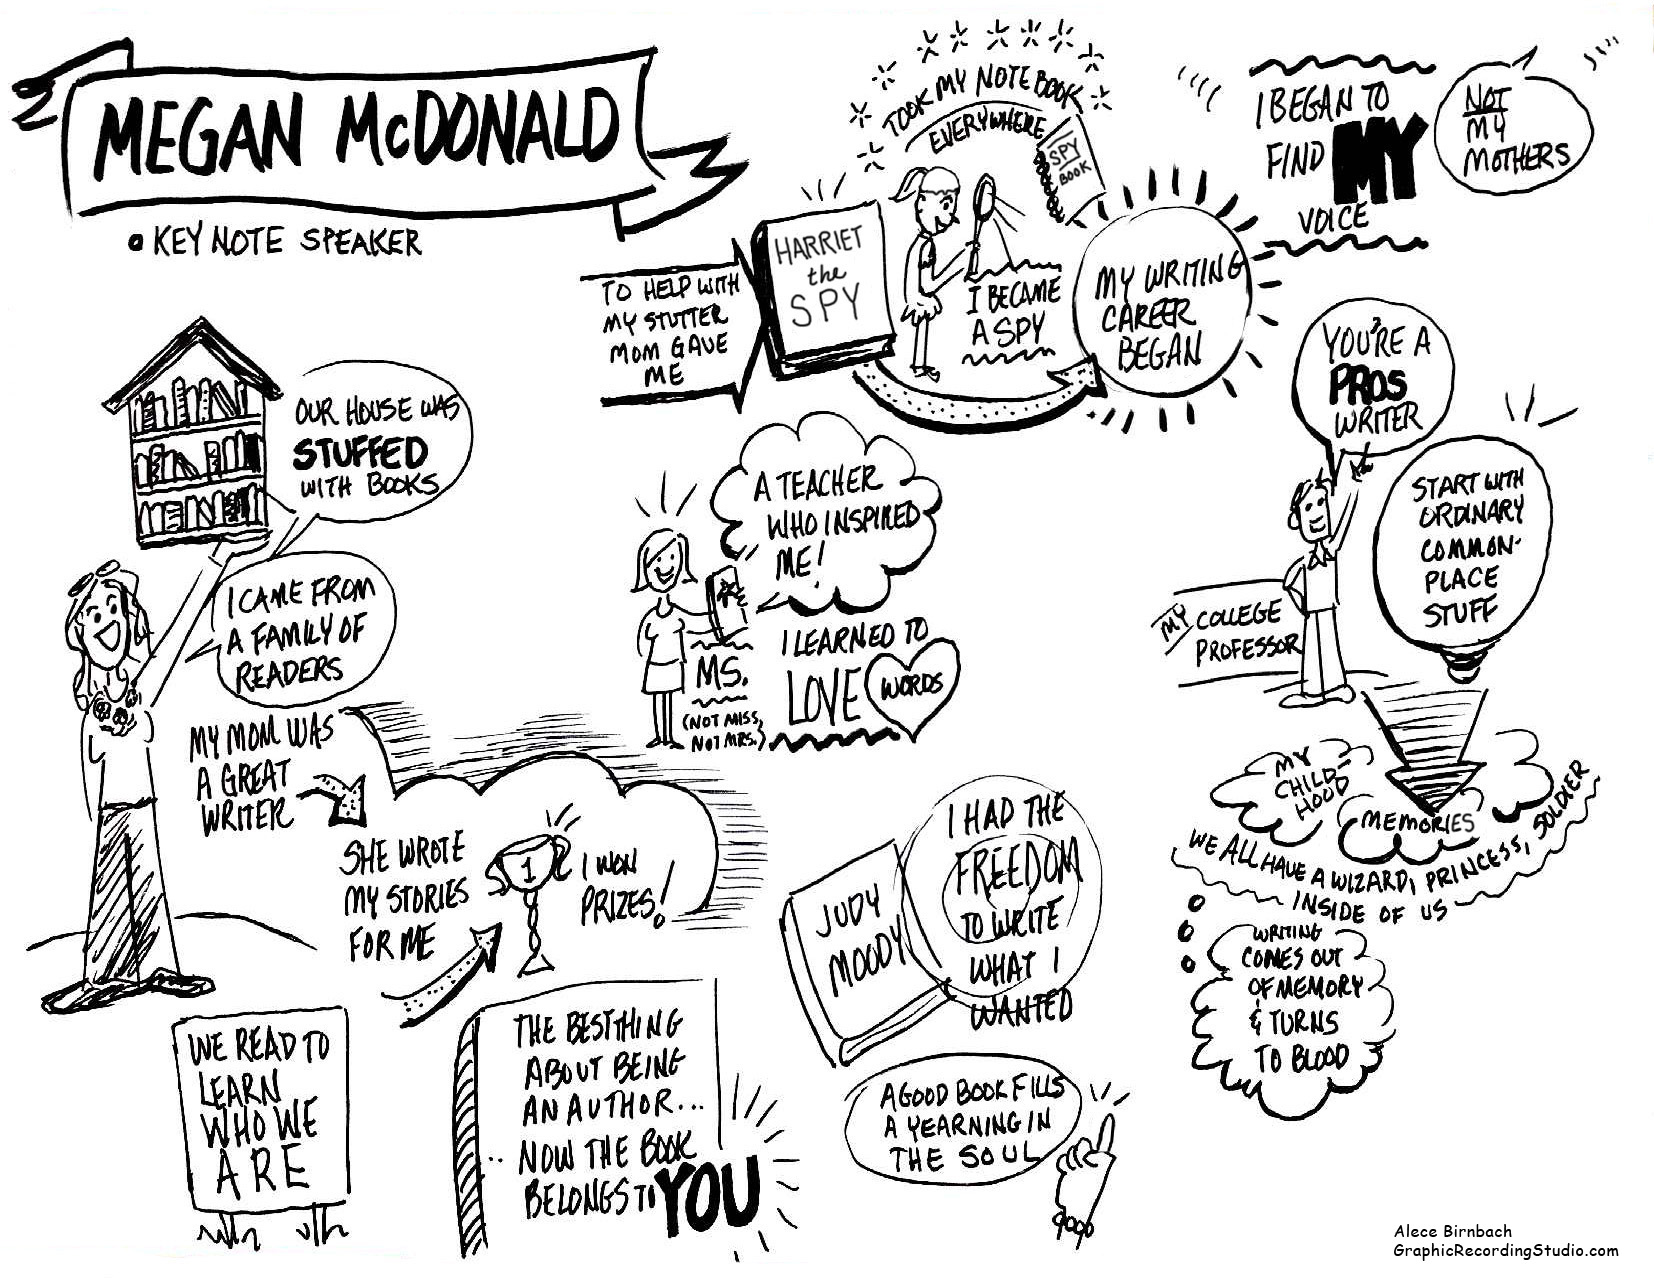 MEGAN McDONALD
• KEY NOTE SPEAKER
OUR HOUSE WAS
STUFFED
WITH BOOKS
I CAME FROM
A FAMILY OF
READERS
MY MOM WAS
A GREAT
WRITER
SHE WROTE
MY STORIES
FOR ME
1
I WON
PRIZES!
WE READ TO
LEARN
WHO WE
ARE
THE BEST THING
ABOUT BEING
AN AUTHOR...
..NOW THE BOOK
BELONGS TO YOU
TO HELP WITH
MY STUTTER
MOM GAVE
ME
HARRIET
the
SPY
TOOK MY NOTEBOOK
EVERYWHERE
SPY
BOOK
I BECAME
A SPY
MY WRITING
CAREER
BEGAN
I BEGAN TO
FIND MY
VOICE
NOT
MY
MOTHERS
A TEACHER
WHO INSPIRED
ME!
MS.
(NOT MISS,
NOT MRS.)
I LEARNED TO
LOVE WORDS
JUDY
MOODY
I HAD THE
FREEDOM
TO WRITE
WHAT I
WANTED
A GOOD BOOK FILLS
A YEARNING IN
THE SOUL
YOU'RE A
PROS
WRITER
MY COLLEGE
PROFESSOR
START WITH
ORDINARY
COMMON-
PLACE
STUFF
MY
CHILD
HOOD
MEMORIES
WE ALL HAVE A WIZARD, PRINCESS, SOLDIER
INSIDE OF US
WRITING
COMES OUT
OF MEMORY
& TURNS
TO BLOOD
Alece Birnbach
GraphicRecordingStudio.com